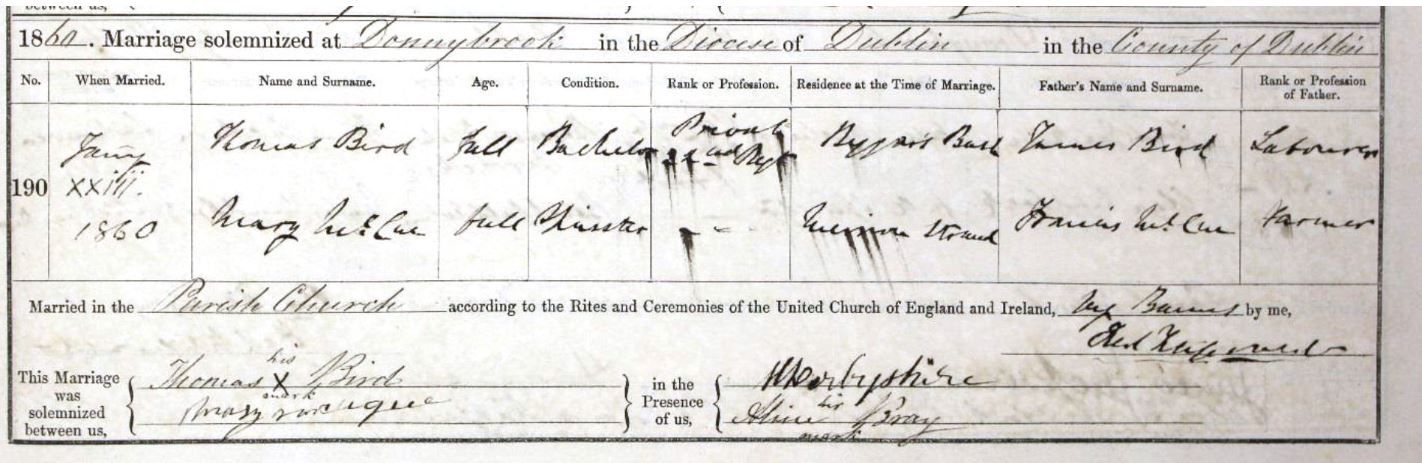 between us,
1860. Marriage solemnized at Donnybrook in the Diocese of Dublin in the County of Dublin
No. When Married. Name and Surname. Age. Condition. Rank or Profession. Residence at the Time of Marriage. Father's Name and Surname. Rank or Profession of Father.
190 Jany XXIII. 1860 Thomas Bird Full Bachelor Private Regt James Bird Labourer
Mary McCue Full Spinster Merrion Strand Francis McCue Farmer
Married in the Parish Church according to the Rites and Ceremonies of the United Church of England and Ireland, by Banns by me,
This Marriage was solemnized between us, Thomas his X mark Bird in the Presence of us, Derbyshire
Mary his mark Bray